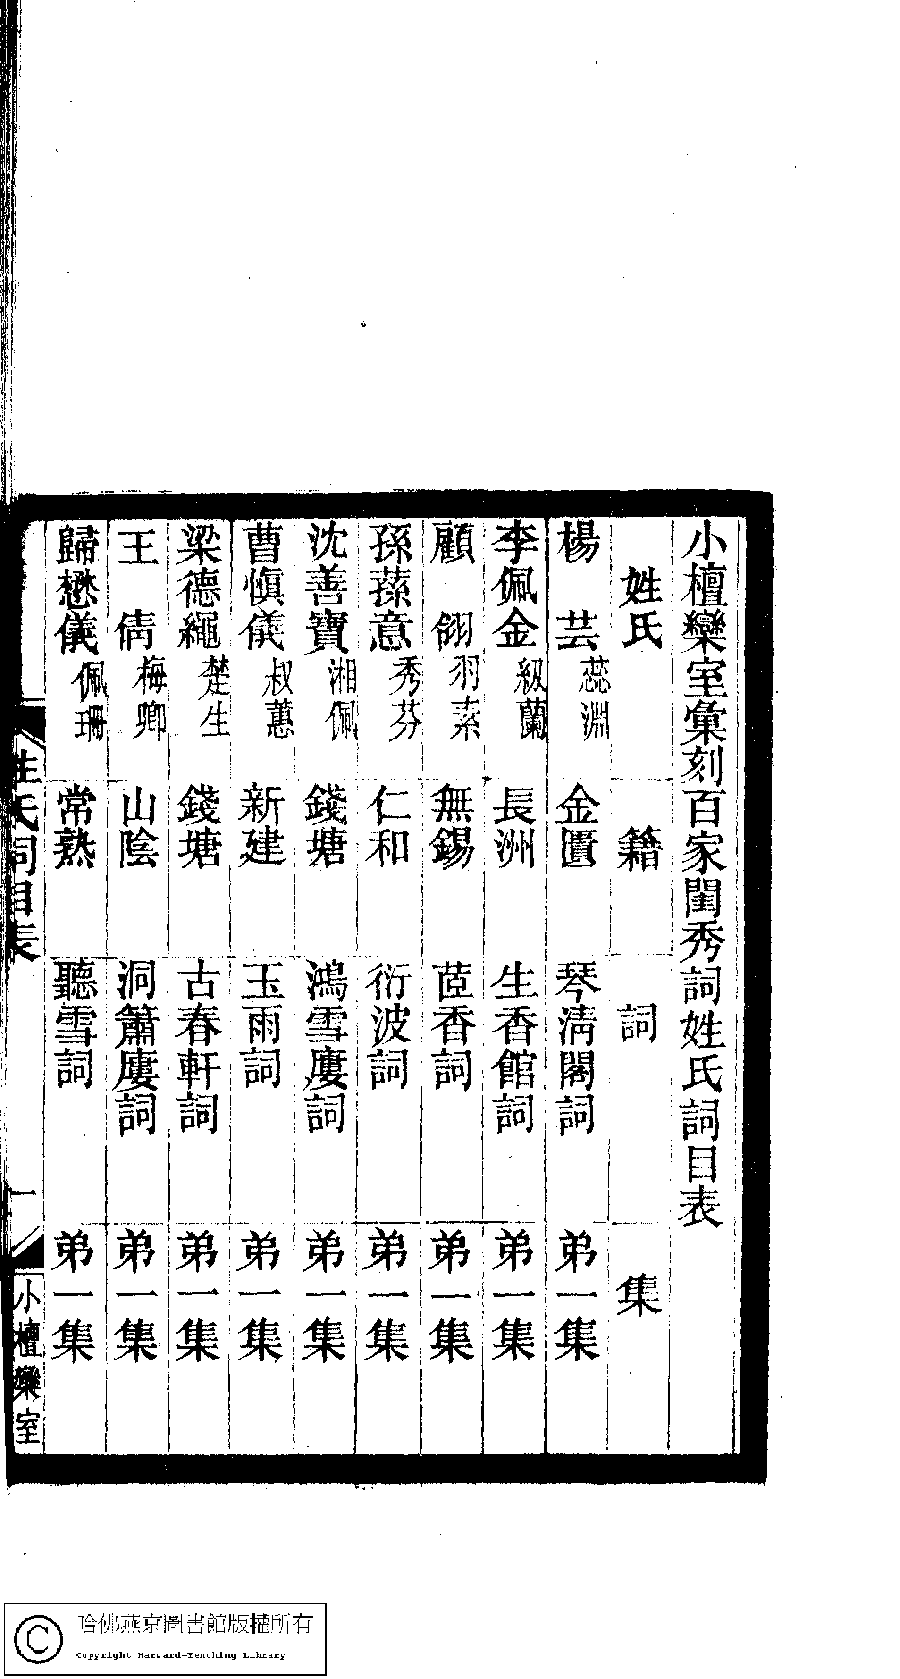 小檀欒室彙刻百家閨秀詞姓氏詞目表
姓氏 籍 詞 集
楊芸 蕊淵 金匱 琴淸閣詞 弟一集
李佩金 紉蘭 長洲 生香館詞 弟一集
顧翎 羽素 無錫 茝香詞 弟一集
孫蓀意 秀芬 仁和 衍波詞 弟一集
沈善寶 湘佩 錢塘 鴻雪廔詞 弟一集
曹愼儀 叔蕙 新建 玉雨詞 弟一集
梁德繩 楚生 錢塘 古春軒詞 弟一集
王倩 梅卿 山陰 洞簫廔詞 弟一集
歸懋儀 佩珊 常熟 聽雪詞 弟一集
姓氏詞目表 一 小檀欒室
哈佛燕京圖書館版權所有
Copyright Harvard-Yenching Library